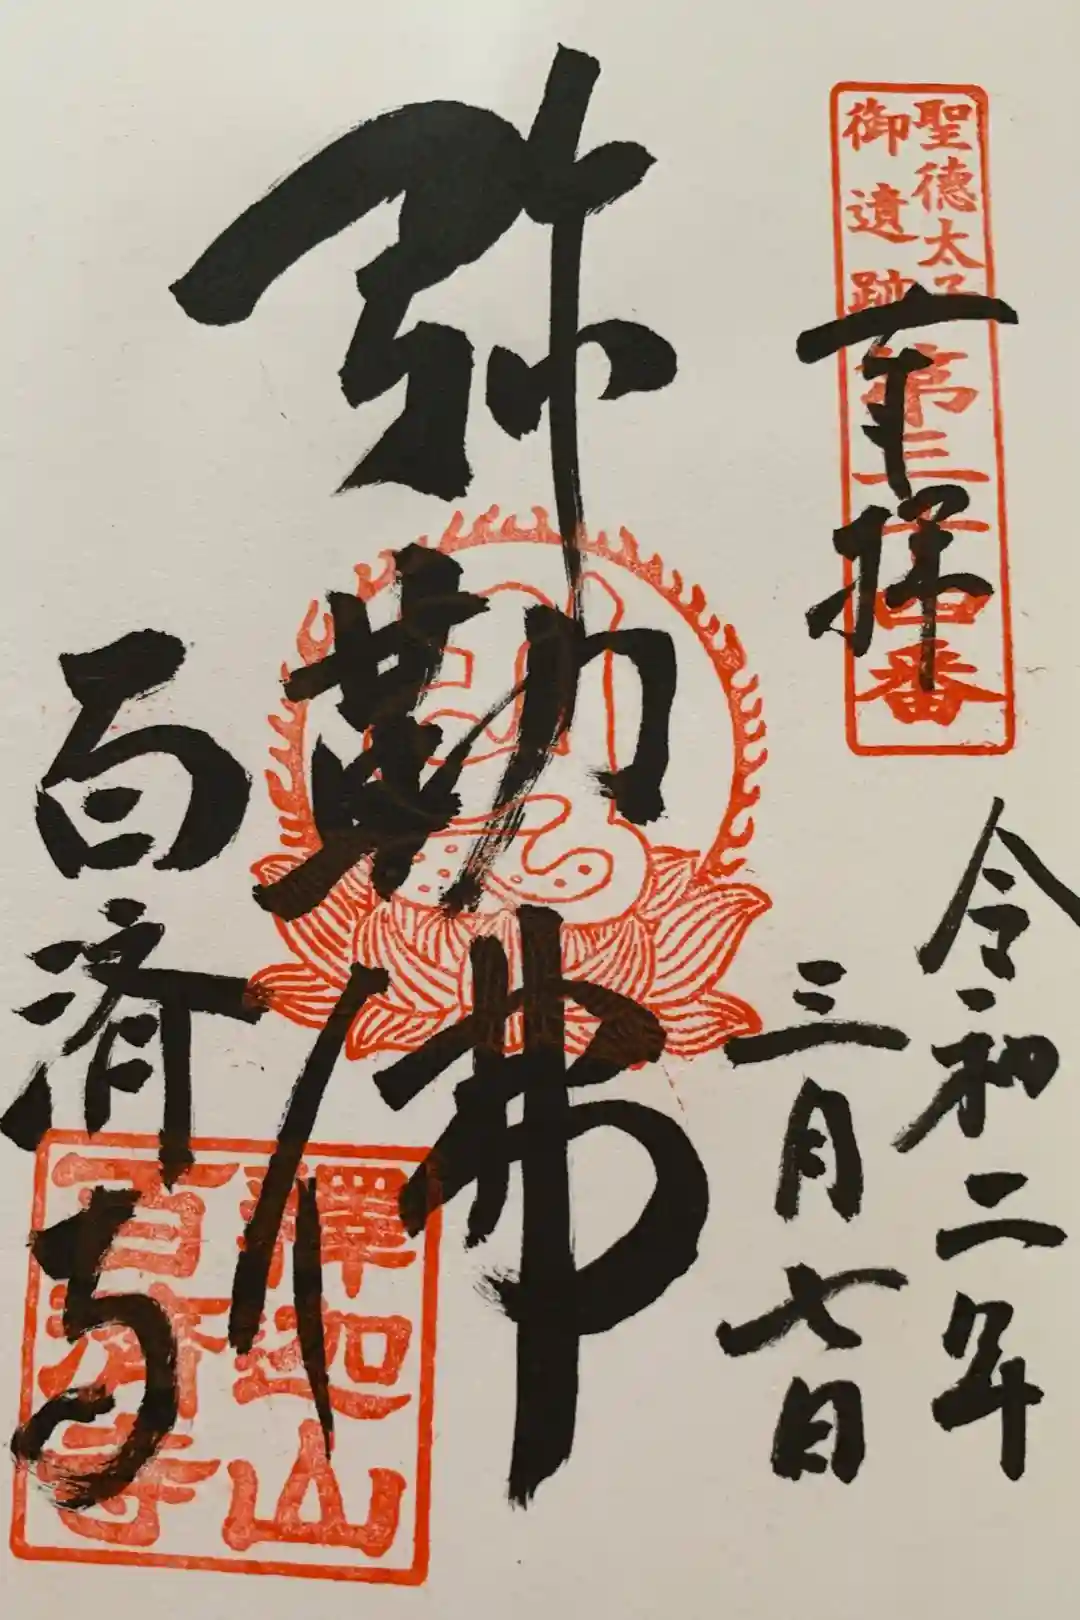 聖徳太子
御遺跡
第三十四番
拝
令和二年
三月七日
弥勒佛
百済寺
釋迦山
百濟寺